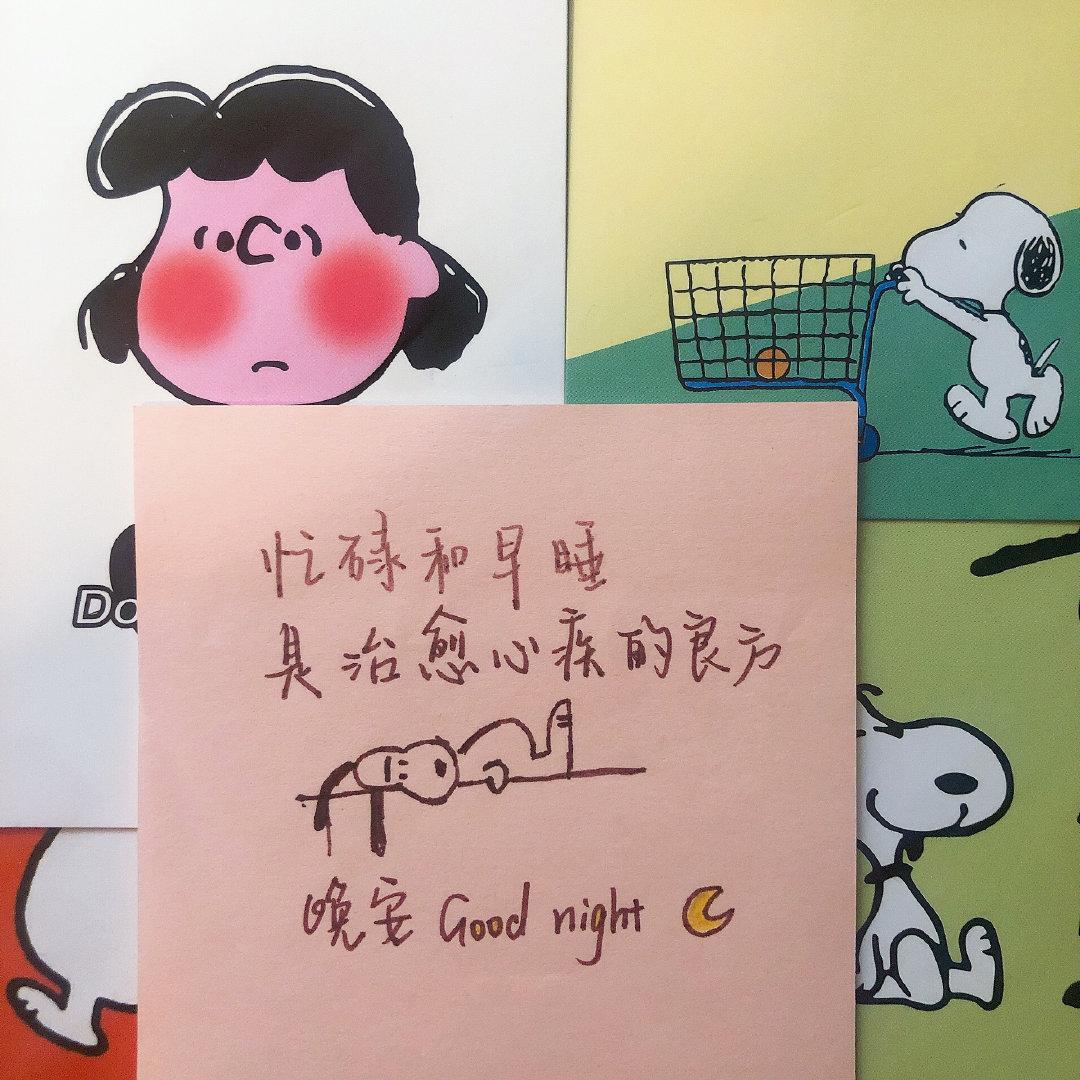 Do
忙碌和早睡
是治愈心疾的良方
晚安 Good night